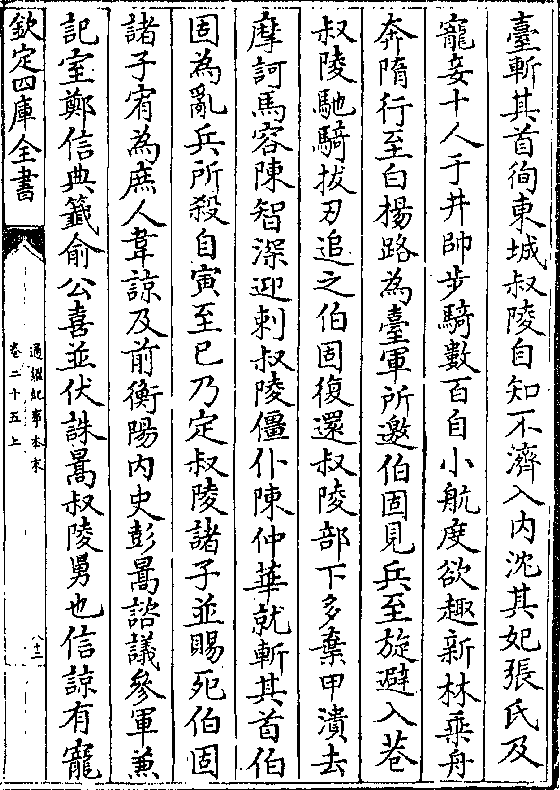 臺斬其首徇東城叔陵自知不濟入内沈其妃張氏及
寵妾十人于井帥步騎數百自小航度欲趣新林乗舟
奔隋行至白楊路為臺軍所邀伯固見兵至旋避入巷
叔陵馳騎拔刃追之伯固復還叔陵部下多棄甲潰去
摩訶馬容陳智深迎刺叔陵僵仆陳仲華就斬其首伯
固為亂兵所殺自寅至巳乃定叔陵諸子並賜死伯固
諸子宥為庶人韋諒及前衡陽内史彭暠諮議參軍兼
記室鄭信典籖俞公喜並伏誅暠叔陵舅也信諒有寵
欽定四庫全書
通鑑紀事本末
卷二十五上
八十二